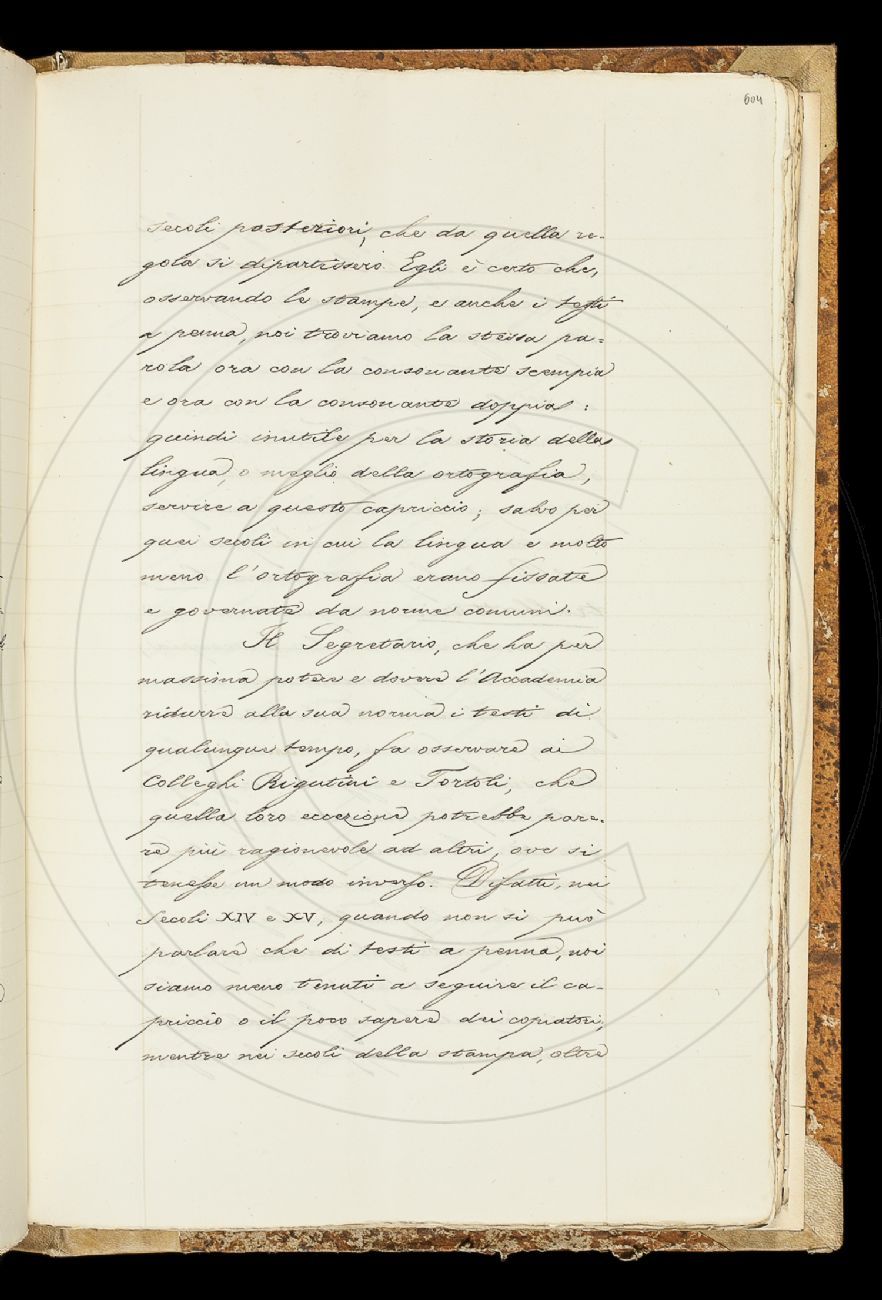 604
secoli posteriori, che da quella re-
gola si dipartissero. Egli è certo che,
osservando le stampe, e anche i testi
a penna, noi troviamo la stessa pa-
rola ora con la consonante scempia
e ora con la consonante doppia:
quindi inutile per la storia della
lingua, o meglio della ortografia,
servire a questo capriccio; salvo per
quei secoli in cui la lingua e molto
meno l'ortografia erano fissate
e governate da norme comuni.
Il Segretario, che ha per
massima potere e dovere l'Accademia
ridurre alla sua norma i testi di
qualunque tempo, fa osservare ai
Colleghi Rigutini e Tortoli, che
quella loro eccezione potrebbe pare-
re più ragionevole ad altri, ove si
tenesse un modo inverso. Difatti, nei
Secoli XIV e XV, quando non si può
parlare che di testi a penna, noi
siamo meno tenuti a seguire il ca-
priccio o il poco sapere dei copiatori,
mentre nei secoli della stampa, oltre